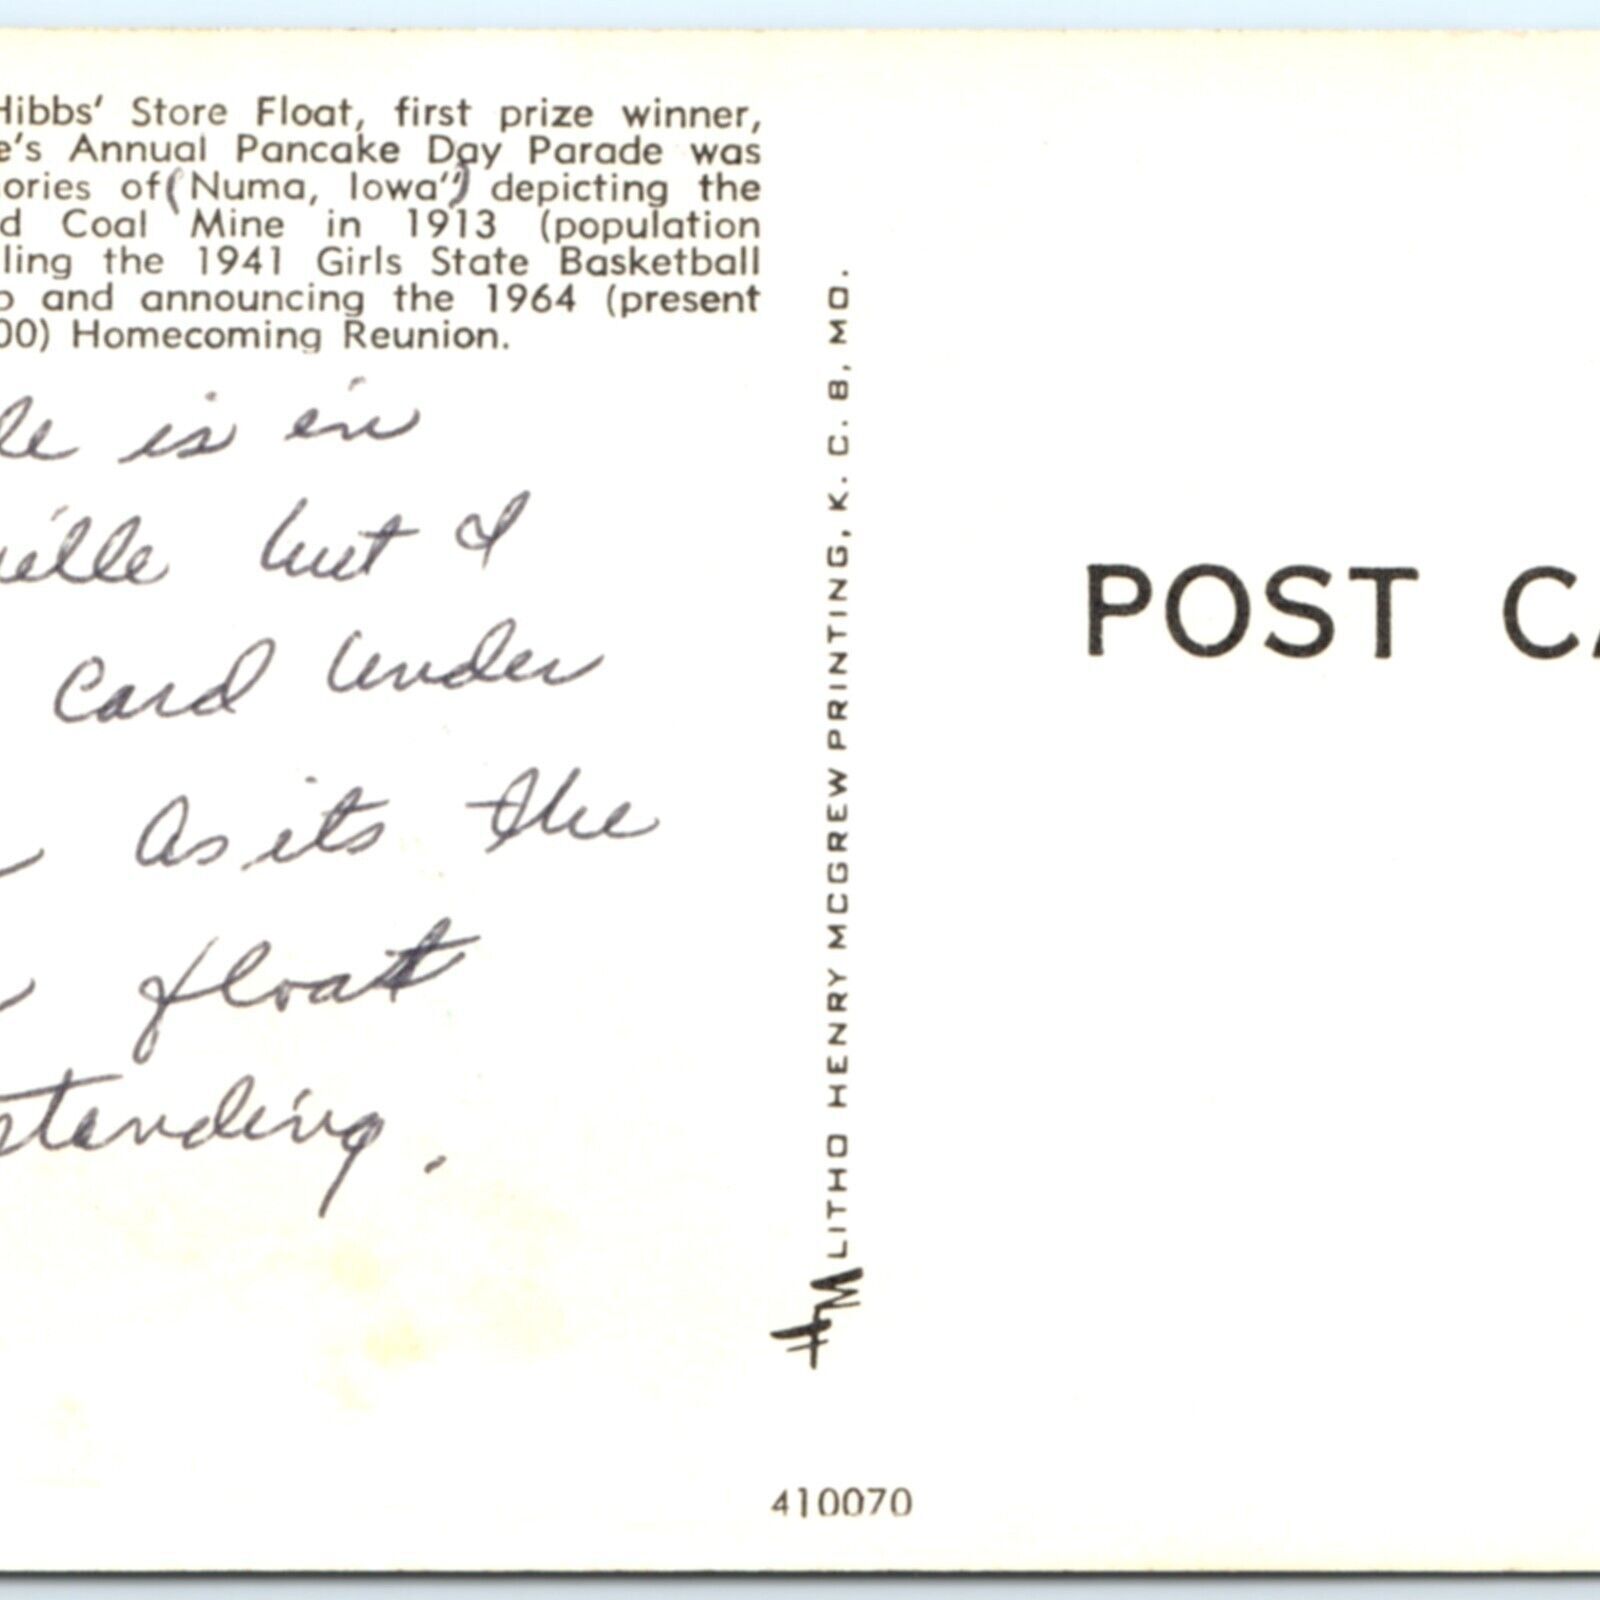 Hibbs' Store Float, first prize winner,
e's Annual Pancake Day Parade was
ories of (Numa, Iowa") depicting the
d Coal Mine in 1913 (population
ling the 1941 Girls State Basketball
p and announcing the 1964 (present
00) Homecoming Reunion.
le is in
ville but I
Card under
as its the
float
standing.
LITHO HENRY MCGREW PRINTING, K. C. 8, MO.
HM
POST CA
410070